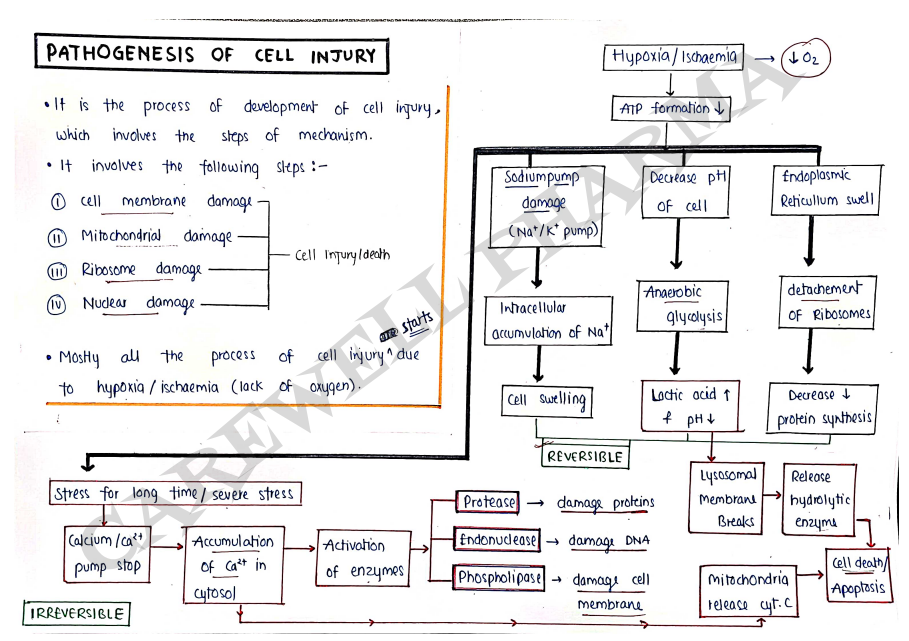 PATHOGENESIS OF CELL INJURY
• It is the process of development of cell injury,
which involves the steps of mechanism.
• It involves the following steps :-
(I) cell membrane damage
(II) Mitochondrial damage
(III) Ribosome damage
(IV) Nuclear damage
Cell injury/death
starts
• Mostly all the process of cell injury ^ due
to hypoxia / ischaemia (lack of oxygen).
Hypoxia / Ischaemia → ↓ O₂
ATP formation ↓
Sodium pump
damage
(Na⁺/K⁺ pump)
Intracellular
accumulation of Na⁺
Cell swelling
Decrease pH
of cell
Anaerobic
glycolysis
Lactic acid ↑
& pH ↓
Endoplasmic
Reticullum swell
detachement
of Ribosomes
Decrease ↓
protein synthesis
REVERSIBLE
Lysosomal
Membrane
Breaks
Release
hydrolytic
enzyme
Cell death/
Apoptosis
Stress for long time / severe stress
Calcium / Ca²⁺
pump stop
Accumulation
of Ca²⁺ in
cytosol
Activation
of enzymes
Protease → damage proteins
Endonuclease → damage DNA
Phospholipase → damage cell
membrane
Mitochondria
release cyt. C
IRREVERSIBLE
CAREWELL PHARMA